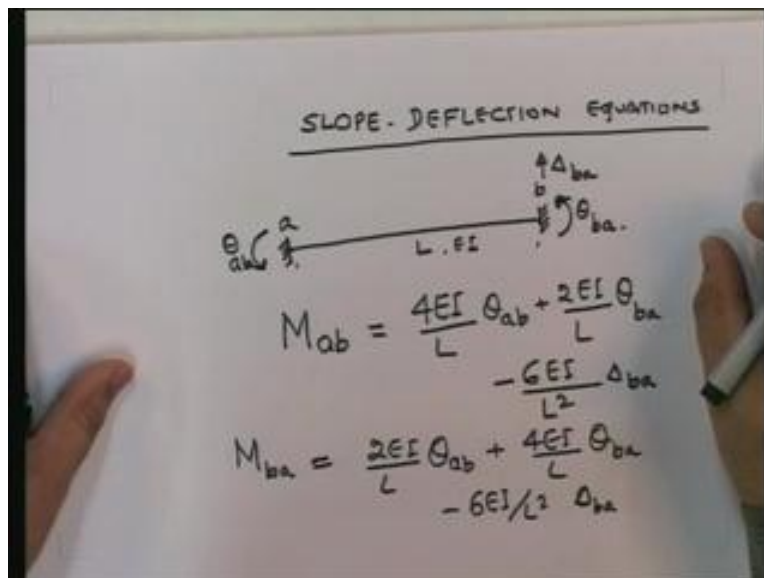 SLOPE - DEFLECTION EQUATIONS
Δba
a b
θab θba.
L . EI
Mab = 4EI/L θab + 2EI/L θba
- 6EI/L² Δba
Mba = 2EI/L θab + 4EI/L θba
- 6EI/L² Δba